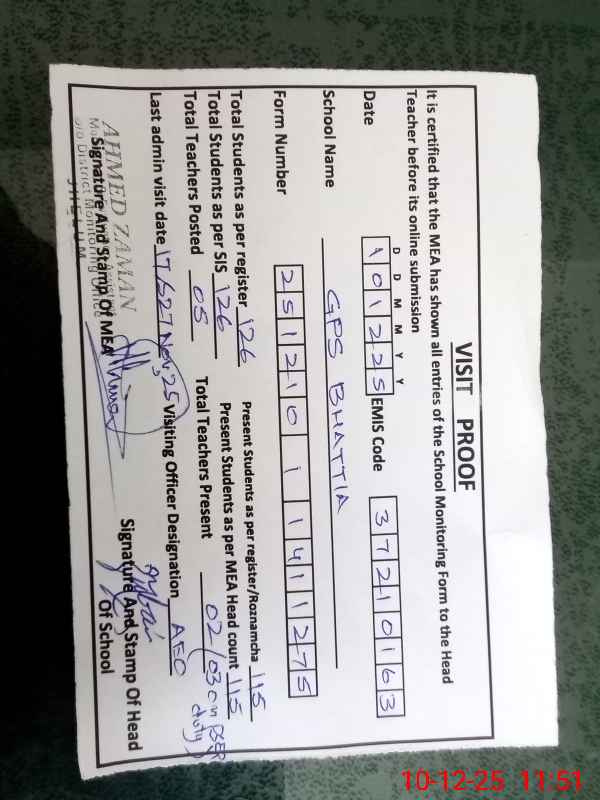 VISIT PROOF
It is certified that the MEA has shown all entries of the School Monitoring Form to the Head
Teacher before its online submission
D D M M Y Y
Date 101225 EMIS Code 37210163
School Name GPS BHATTIA
Form Number 25121011411275
Total Students as per register 126 Present Students as per register/Roznamcha 115
Total Students as per SIS 126 Present Students as per MEA Head count 115
Total Teachers Posted 05 Total Teachers Present 02/03 on duty
Last admin visit date 27 Nov, 25 Visiting Officer Designation AEO
AHMED ZAMAN
District Monitoring Office
JHELUM
Signature And Stamp Of MEA
Signature And Stamp Of Head
Of School
10-12-25 11:51